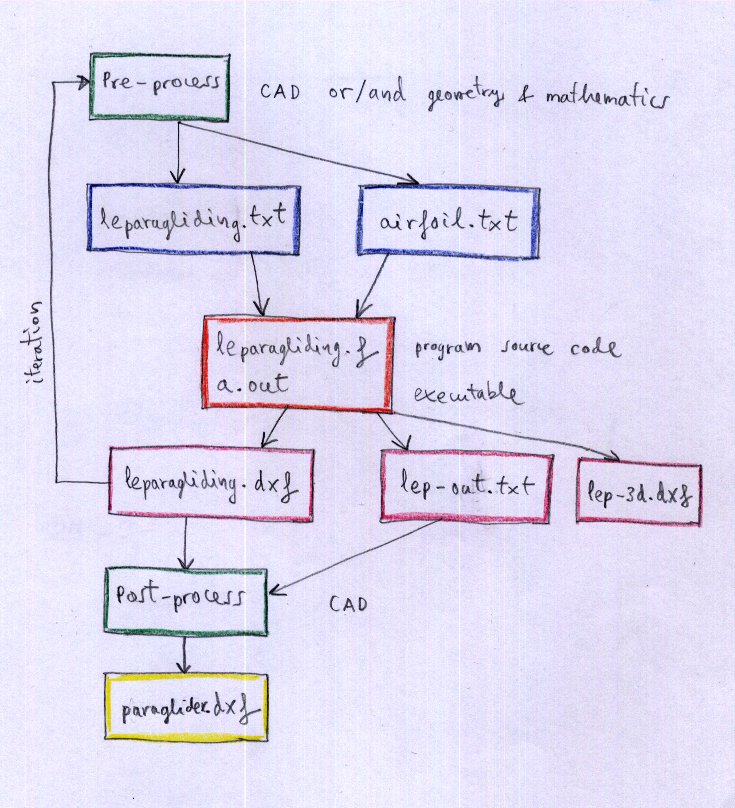 Pre-process
CAD or/and geometry & mathematics
leparagliding.txt
airfoil.txt
iteration
leparagliding.f
a.out
program source code
executable
leparagliding.dxf
lep-out.txt
lep-3d.dxf
Post-process
CAD
paraglider.dxf